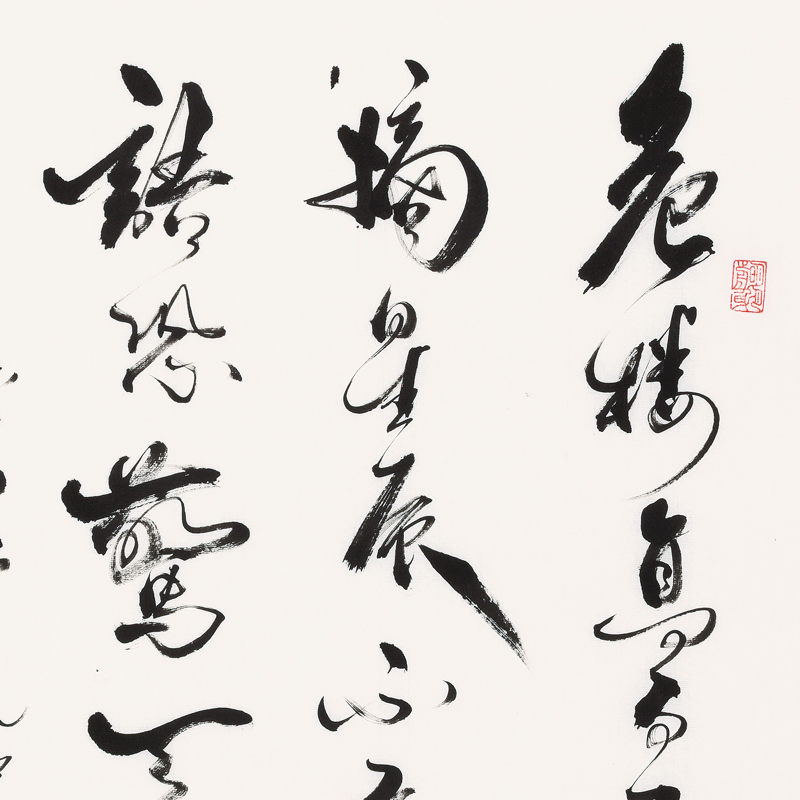 危樓高百
摘星辰不
語恐驚天